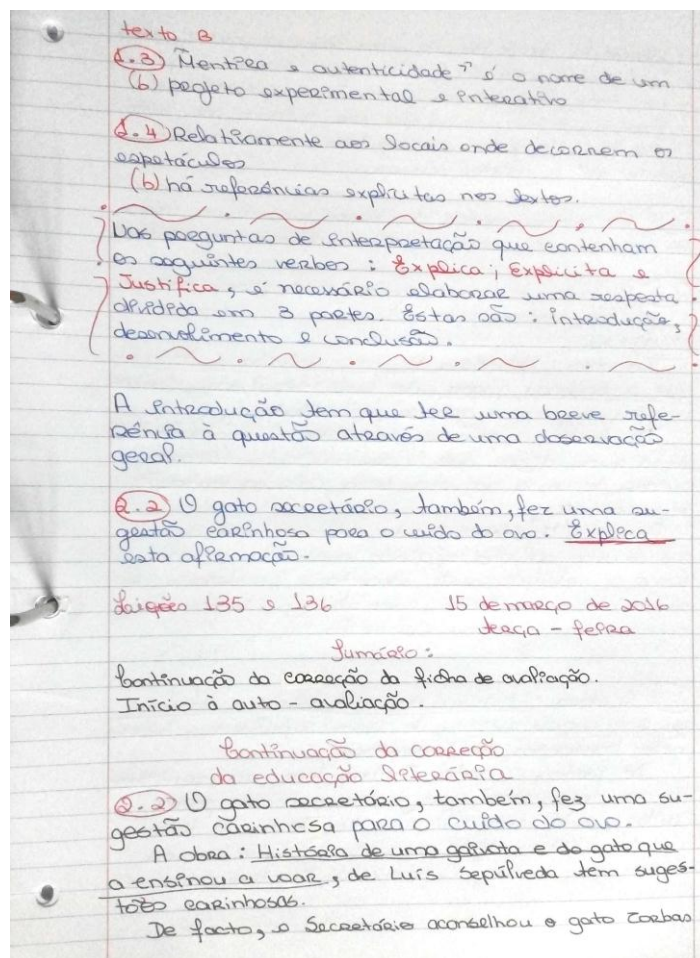 texto B
1.3 "Mentira e autenticidade" é o nome de um
(b) projeto experimental e interativo
1.4 Relativamente aos locais onde decorrem os
espetáculos
(b) há referências explícitas nos textos.
Nas preguntas de interpretação que contenham
os seguintes verbos: Explica; Explicita e
Justifica, é necessário elaborar uma resposta
dividida em 3 partes. Estas são: introdução,
desenvolvimento e conclusão.
A introdução tem que ter uma breve refe-
rência à questão através de uma observação
geral.
2.2 O gato secretário, também, fez uma su-
gestão carinhosa para o cuido do ovo. Explica
esta afirmação.
Lições 135 e 136 15 de março de 2016
terça-feira
Sumário:
Continuação da correção da ficha de avaliação.
Início à auto-avaliação.
Continuação da correção
da educação literária
2.2 O gato secretário, também, fez uma su-
gestão carinhosa para o cuido do ovo.
A obra: História de uma gaivota e do gato que
a ensinou a voar, de Luís Sepúlveda tem suges-
tões carinhosas.
De facto, o Secretário aconselhou o gato Zorbas